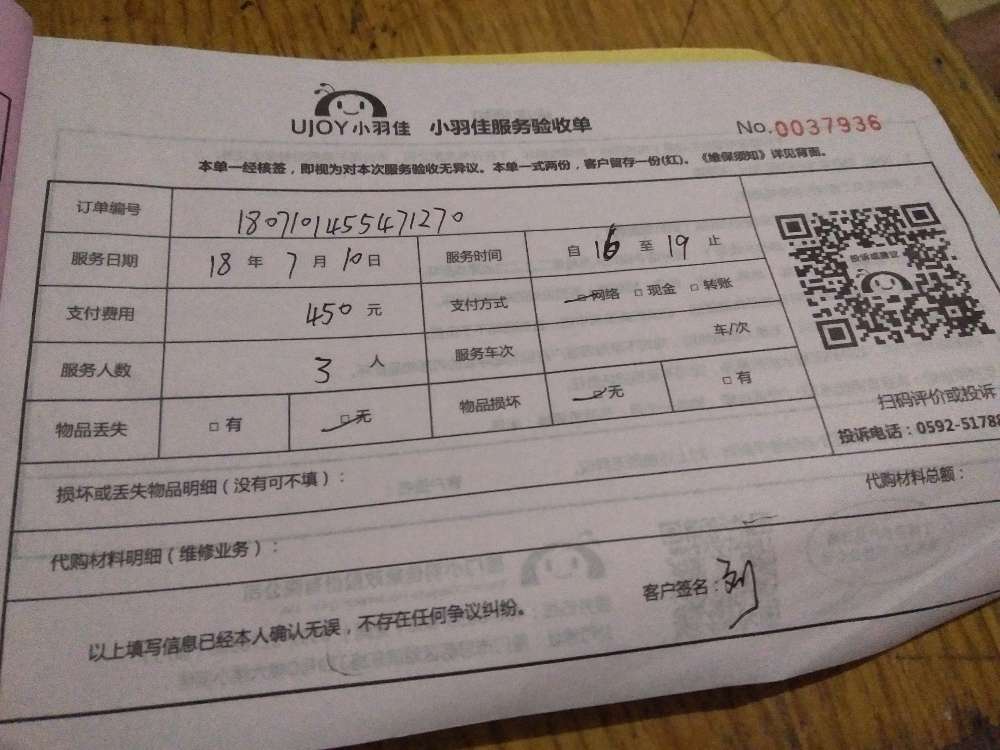 UJOY小羽佳 小羽佳服务验收单 No.0037936
本单一经核签，即视为对本次服务验收无异议。本单一式两份，客户留存一份(红)。《维保须知》详见背面。
订单编号 1807101455471270
服务日期 18 年 7 月 10 日 服务时间 自 16 至 19 止
投诉或建议
支付费用 450 元 支付方式 □网络 □现金 □转账
服务人数 3 人 服务车次 车/次
物品丢失 □有 □无 物品损坏 □无 □有
扫码评价或投诉
投诉电话：0592-51788
损坏或丢失物品明细（没有可不填）： 代购材料总额：
代购材料明细（维修业务）：
以上填写信息已经本人确认无误，不存在任何争议纠纷。 客户签名：刘